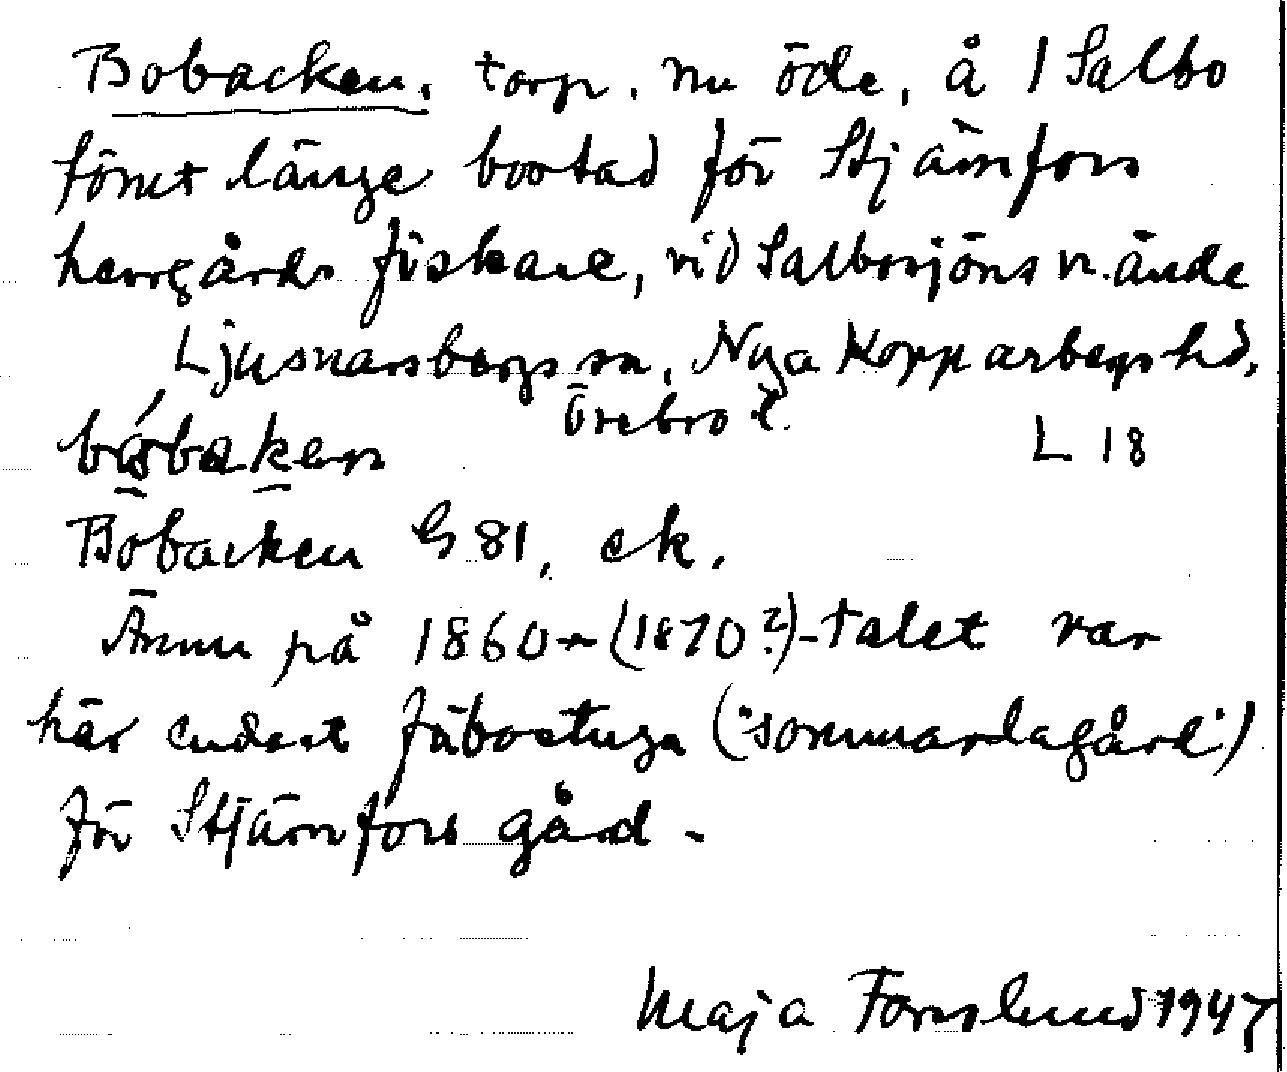 Bobacken, torp, nu öde, å 1 Salbo
förut länge bostad för Stjärnfors
herrgårds fiskare, vid Salbosjöns n. ände
Ljusnarsbergs sn, Nya Kopparbergs hd,
Örebro l.
L 18
Bobacken G 81, ek.
Ännu på 1860- (1870?)-talet var
här endast fäbostuga ("sommarlagård")
för Stjärnfors gård.
Maja Forslund 1947